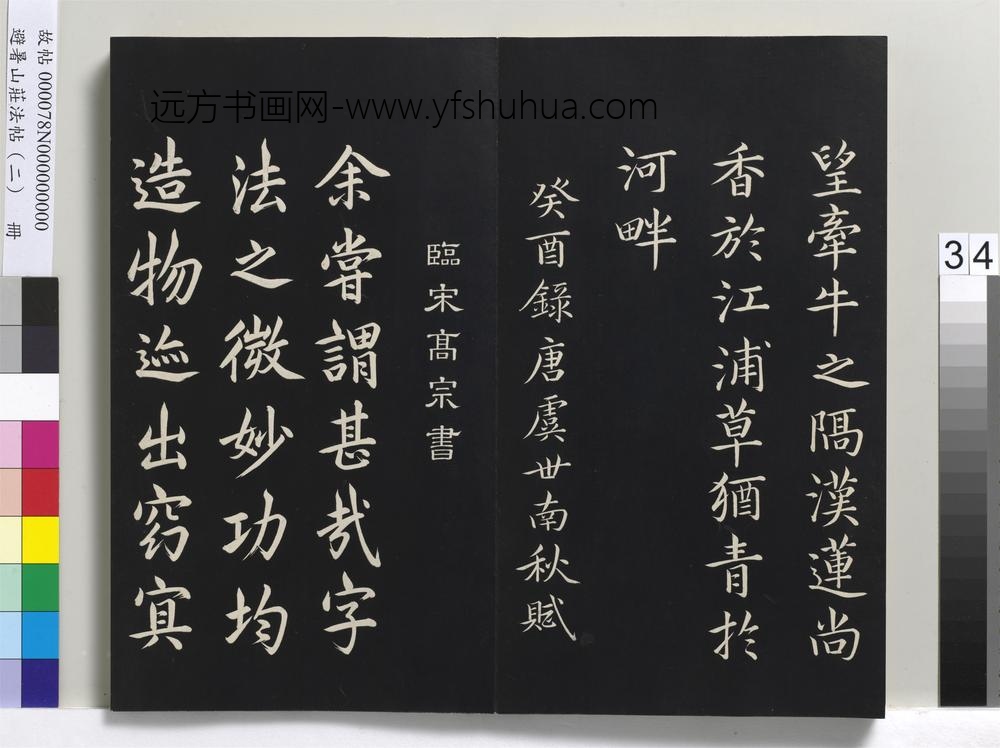 故帖 000078N000000000
避暑山莊法帖（二） 冊
远方书画网-www.yfshuhua.com
34
望牽牛之隔漢蓮尚
香於江浦草猶青於
河畔
癸酉錄唐虞世南秋賦
臨宋高宗書
余嘗謂甚哉字
法之微妙功均
造物迹出窈寘